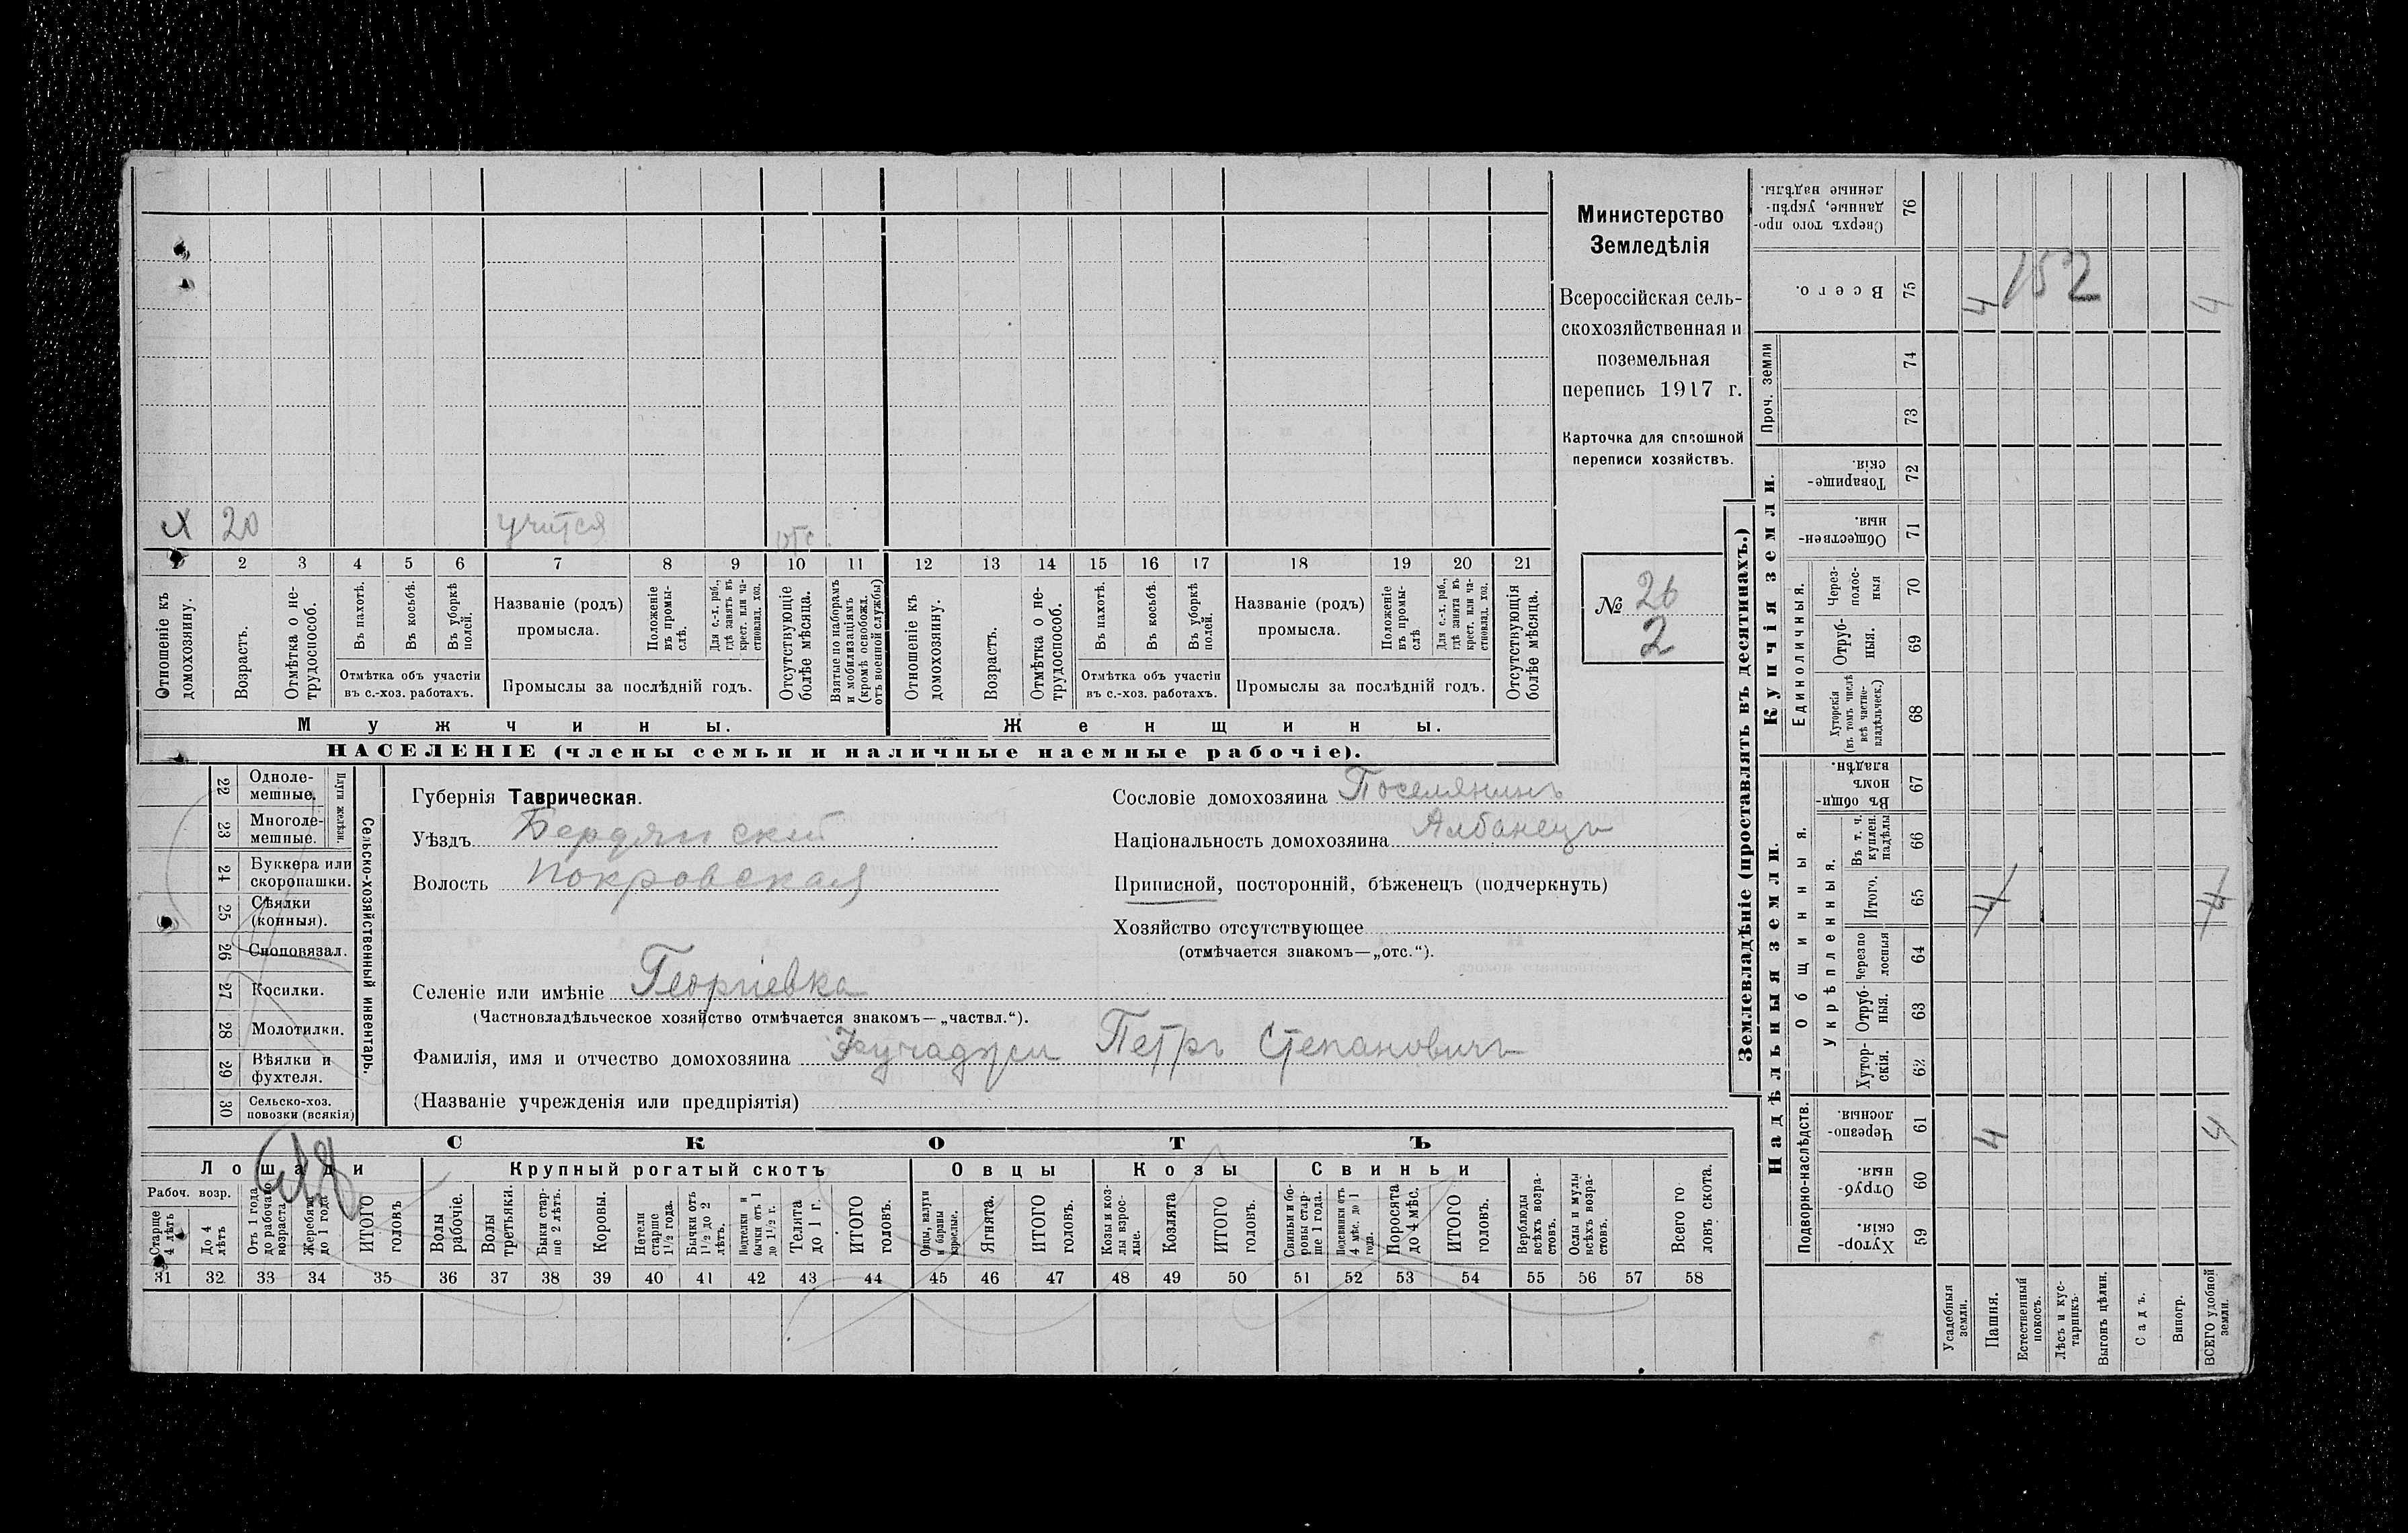 Министерство
Земледѣлія
Всероссійская сель-
скохозяйственная и
поземельная
перепись 1917 г.
Карточка для сплошной
переписи хозяйствъ.
№ 26
2
х 20 учится отс.
1 2 3 4 5 6 7 8 9 10 11 12 13 14 15 16 17 18 19 20 21
Отношеніе къ домохозяину.
Возрастъ.
Отмѣтка о не-трудоспособ.
Въ пахотѣ.
Въ косьбѣ.
Въ уборкѣ полей.
Отмѣтка объ участіи
въ с.-хоз. работахъ.
Названіе (родъ)
промысла.
Положеніе въ промы-слѣ.
Для с.-х. раб., гдѣ занятъ въ крест. или ча-стновлад. хоз.
Промыслы за послѣдній годъ.
Отсутствующіе болѣе мѣсяца.
Взятые по наборамъ и мобилизаціямъ (кромѣ освобожд. отъ военной службы)
Отношеніе къ домохозяину.
Возрастъ.
Отмѣтка о не-трудоспособ.
Въ пахотѣ.
Въ косьбѣ.
Въ уборкѣ полей.
Отмѣтка объ участіи
въ с.-хоз. работахъ.
Названіе (родъ)
промысла.
Положеніе въ промы-слѣ
Для с.-х. раб., гдѣ занята въ крест. или ча-стновлад. хоз.
Промыслы за послѣдній годъ.
Отсутствующія болѣе мѣсяца.
Мужчины. Женщины.
НАСЕЛЕНІЕ (члены семьи и наличные наемные рабочіе).
Сельско-хозяйственный инвентарь.
Плуги желѣзн.
22 Одноле-мешные.
23 Многоле-мешные.
24 Буккера или скоропашки.
25 Сѣялки (конныя).
26 Сноповязал.
27 Косилки.
28 Молотилки.
29 Вѣялки и фухтеля.
30 Сельско-хоз. повозки (всякія)
Губернія Таврическая.
Уѣздъ Бердянскій
Волость Покровская
Сословіе домохозяина Поселянинъ
Національность домохозяина Албанецъ
Приписной, посторонній, бѣженецъ (подчеркнуть)
Хозяйство отсутствующее
(отмѣчается знакомъ—„отс.“).
Селеніе или имѣніе Георгіевка
(Частновладѣльческое хозяйство отмѣчается знакомъ—„частвл.“).
Фамилія, имя и отчество домохозяина Петръ Степановичъ
(Названіе учрежденія или предпріятія)
СКОТЪ
Лошади Крупный рогатый скотъ Овцы Козы Свиньи
Рабоч. возр.
Старше 4 лѣтъ
До 4 лѣтъ
Отъ 1 года до рабочаго возраста
Жеребята до 1 года
ИТОГО головъ
Волы рабочіе.
Волы третьяки.
Быки стар-ше 2 лѣтъ.
Коровы.
Нетели старше 1½ года.
Бычки отъ 1½ до 2 лѣтъ.
Подтелки и бычки отъ 1 до 1½ г.
Телята до 1 г.
ИТОГО головъ.
Овцы, валухи и бараны взрослые.
Ягнята.
ИТОГО головъ.
Козы и коз-лы взрос-лые.
Козлята
ИТОГО головъ.
Свиньи и бо-ровы стар-ше 1 года.
Подсвинки отъ 4 мѣс. до 1 года.
Поросята до 4 мѣс.
ИТОГО головъ.
Верблюды всѣхъ возра-стовъ.
Ослы и мулы всѣхъ возра-стовъ.
Всего го-ловъ скота.
31 32 33 34 35 36 37 38 39 40 41 42 43 44 45 46 47 48 49 50 51 52 53 54 55 56 57 58
Землевладѣніе (проставлять въ десятинахъ.)
Купчія земли.
Надѣльныя земли.
Сверхъ того про-данные, укрѣп-ленные надѣлы. 76
Всего. 75 4 152 4
Проч. земли 74
73
Товарище-скія. 72
Обществен-ныя. 71
Единоличныя.
Через-полос-ныя 70
Отруб-ныя. 69
Хуторскія (въ томъ числѣ всѣ частно-владѣльческ.) 68
Общинныя.
Въ общин-номъ владѣн. 67
Укрѣпленныя.
Въ т. ч. куплен. надѣлы 66
Итого. 65 4 4
Черезпо-лосныя 64
Отруб-ныя. 63
Хутор-скія. 62
Подворно-наслѣдств.
Черезпо-лосныя. 61 4 4
Отруб-ныя. 60
Хутор-скія. 59
Усадебныя земли.
Пашня.
Естественный покосъ.
Лѣсъ и кус-тарникъ
Выгонъ цѣлин.
Садъ.
Виногр.
ВСЕГО удобной земли.